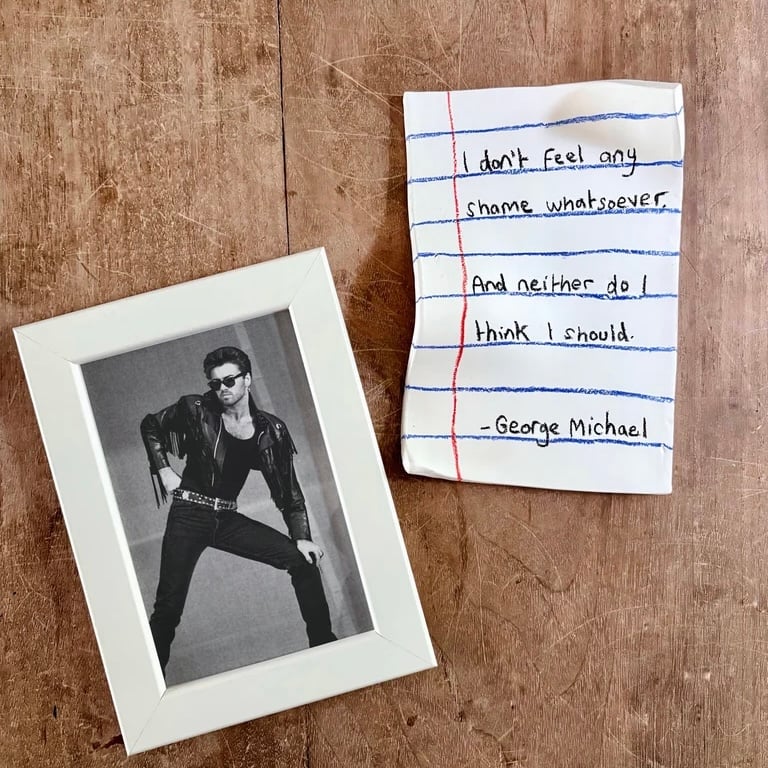 I don't feel any
shame whatsoever.
And neither do I
think I should.
- George Michael